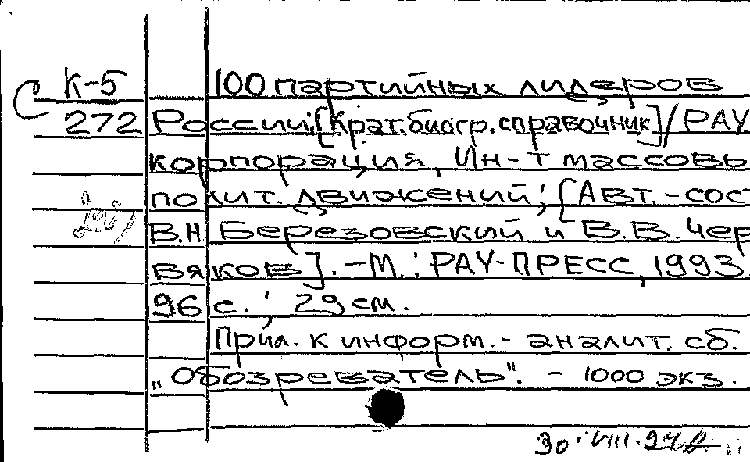 С К-5 100 партийных лидеров
272 России: [Крат. биогр. справочник] / РАУ
корпорация, Ин-т массовы
полит. движений; [Авт.-сос
В.Н. Березовский и В.В. Чер
вяков]. - М.: РАУ-ПРЕСС, 1993
96 с.; 29 см.
Прил. к информ.- аналит. сб.
"Обозреватель". - 1000 экз.
30.VIII.94